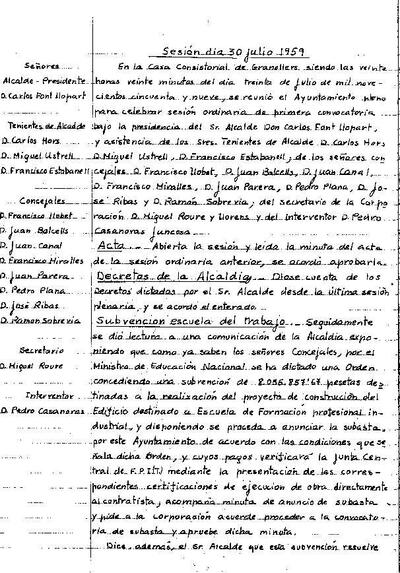 Sesión dia 30 julio 1959
Señores
Alcalde - Presidente
D. Carlos Font Llopart
Tenientes de Alcalde
D. Carlos Hors
D. Miguel Ustrell
D. Francisco Estabanell
Concejales
D. Francisco Llobet
D. Juan Balcells
D. Juan Canal
D. Francisco Miralles
D. Juan Parera
D. Pedro Plana
D. José Ribas
D. Ramon Sobrevia
Secretario
D. Miguel Roure
Interventor
D. Pedro Casanovas
En la Casa Consistorial de Granollers, siendo las veinte
horas veinte minutos del dia treinta de julio de mil nove-
cientos cincuenta y nueve, se reunió el Ayuntamiento pleno
para celebrar sesión ordinaria de primera convocatoria
bajo la presidencia del Sr. Alcalde Don Carlos Font Llopart,
y asistencia de los Sres. Tenientes de Alcalde D. Carlos Hors
D. Miguel Ustrell, D. Francisco Estabanell, de los señores con
cejales D. Francisco Llobet, D. Juan Balcells, D. Juan Canal,
D. Francisco Miralles, D. Juan Parera, D. Pedro Plana, D. Jo-
sé Ribas y D. Ramon Sobrevia, del secretario de la Corpo
ración D. Miguel Roure y Llorens y del Interventor D. Pedro
Casanovas Juncosa.
Acta. Abierta la sesión y leida la minuta del acta
de la sesión ordinaria anterior, se acordó aprobarla.
Decretos de la Alcaldia. Diose cuenta de los
Decretos dictados por el Sr. Alcalde desde la última sesión
plenaria, y se acordó el enterado.
Subvención escuela del trabajo. Seguidamente
se dió lectura a una comunicación de la Alcaldia expo-
niendo que como ya saben los señores Concejales, por el
Ministro de Educación Nacional se ha dictado una Orden
concediendo una subvención de 8.056.857'67 pesetas des
tinadas a la realización del proyecto de construcción del
Edificio destinado a Escuela de Formación profesional in-
dustrial, y disponiendo se proceda a anunciar la subasta
por este Ayuntamiento de acuerdo con las condiciones que se
ñala dicha Orden, y cuyos pagos verificará la Junta Cen-
tral de F.P.I. mediante la presentación de las corres-
pondientes certificaciones de ejecución de obra directamente
al contratista, acompaña minuta de anuncio de subasta
y pide a la corporación acuerde proceder a la convocato-
ria de subasta y apruebe dicha minuta.
Dice, además, el Sr Alcalde que esta subvención resuelve